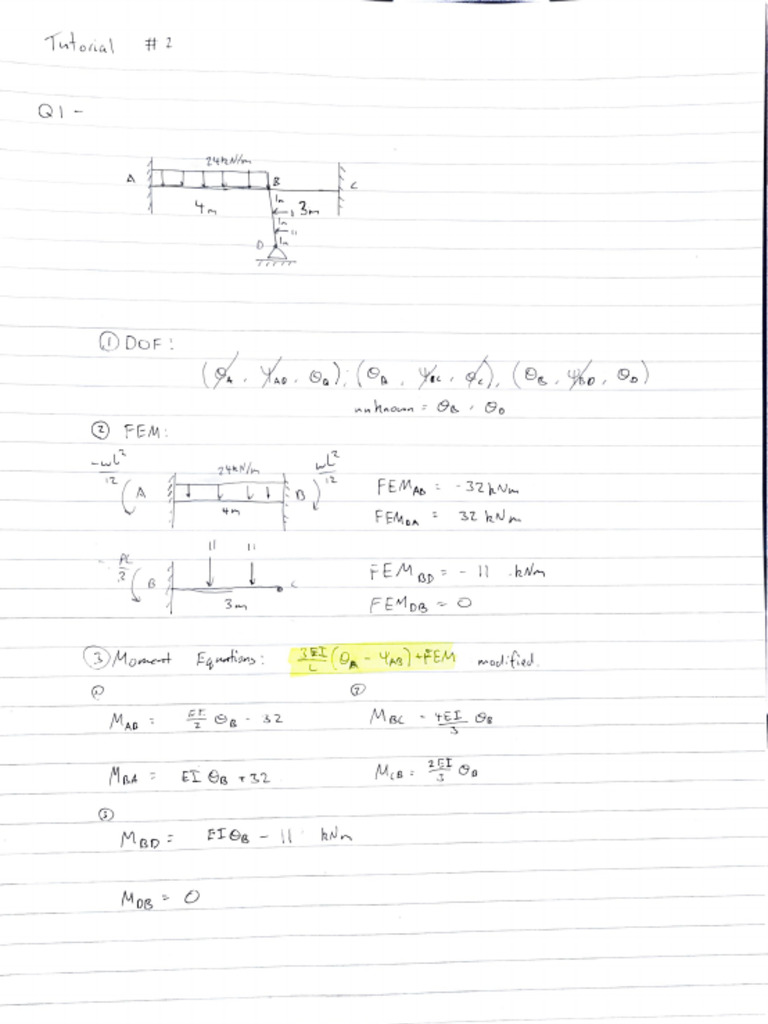 Tutorial #2
Q1 -
24kN/m
A B C
4m 3m
1m
1m
11
D 1m
① DOF:
(θA, ΨAB, θB), (θB, ΨBC, θC), (θB, ΨBD, θD)
unknown = θB, θD
② FEM:
-wL²/12 24kN/m wL²/12
A B FEMAB = -32kNm
4m FEMBA = 32 kNm
11 11
B C FEMBD = -11 kNm
3m FEMDB = 0
③ Moment Equations: 3EI/L (θA - ΨAB) + FEM modified.
① ②
MAB = EI/2 θB - 32 MBC = 4EI/3 θB
MBA = EI θB + 32 MCB = 2EI/3 θB
③
MBD = EIθB - 11 kNm
MDB = 0